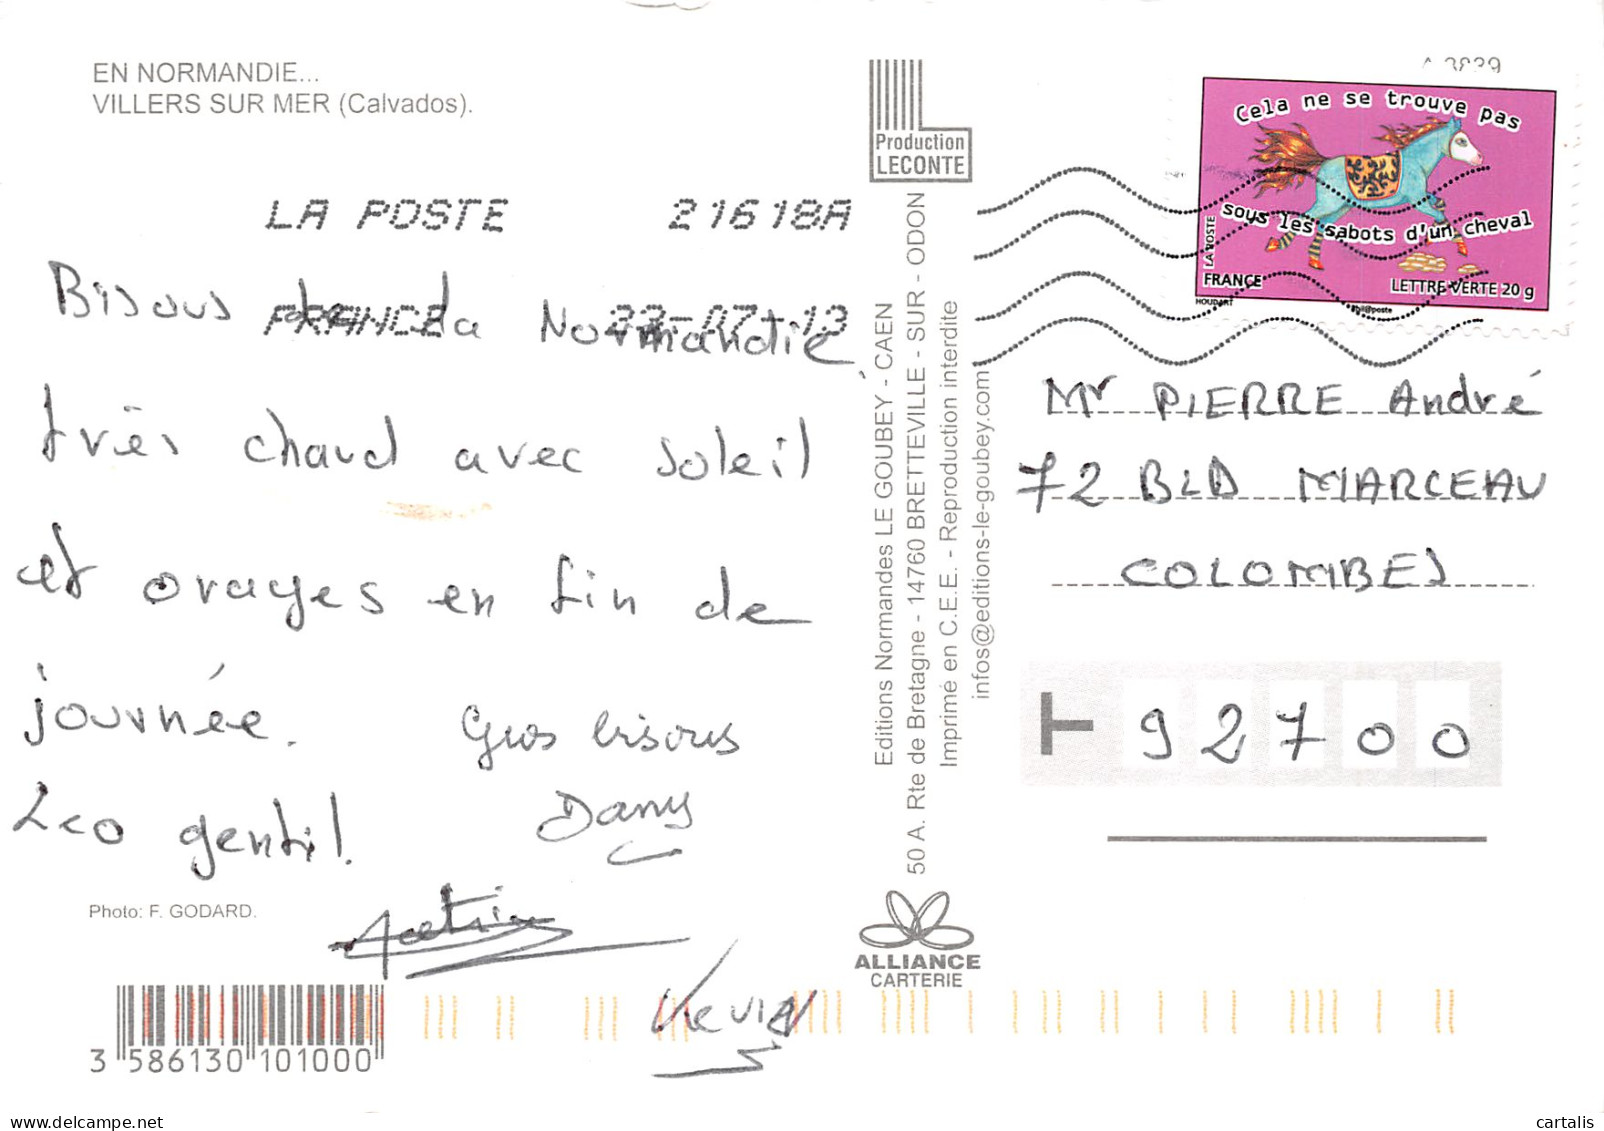 EN NORMANDIE...
VILLERS SUR MER (Calvados).
LA POSTE 21618A
FRANCE 23-07-13
Bisous de la Normandie,
très chaud avec soleil
et orages en fin de
journée. Gros bisous
Leo gentil! Dany
Kevin
Photo: F. GODARD.
3 586130 101000
Production
LECONTE
Editions Normandes LE GOUBEY - CAEN
50 A. Rte de Bretagne - 14760 BRETTEVILLE - SUR - ODON
Imprimé en C.E.E. - Reproduction interdite
infos@editions-le-goubey.com
ALLIANCE
CARTERIE
Cela ne se trouve pas
sous les sabots d'un cheval
LA POSTE
FRANCE LETTRE VERTE 20 g
HOUDART Phil@poste
Mr PIERRE André
72 BLD MARCEAU
COLOMBES
T 92700
cartalis